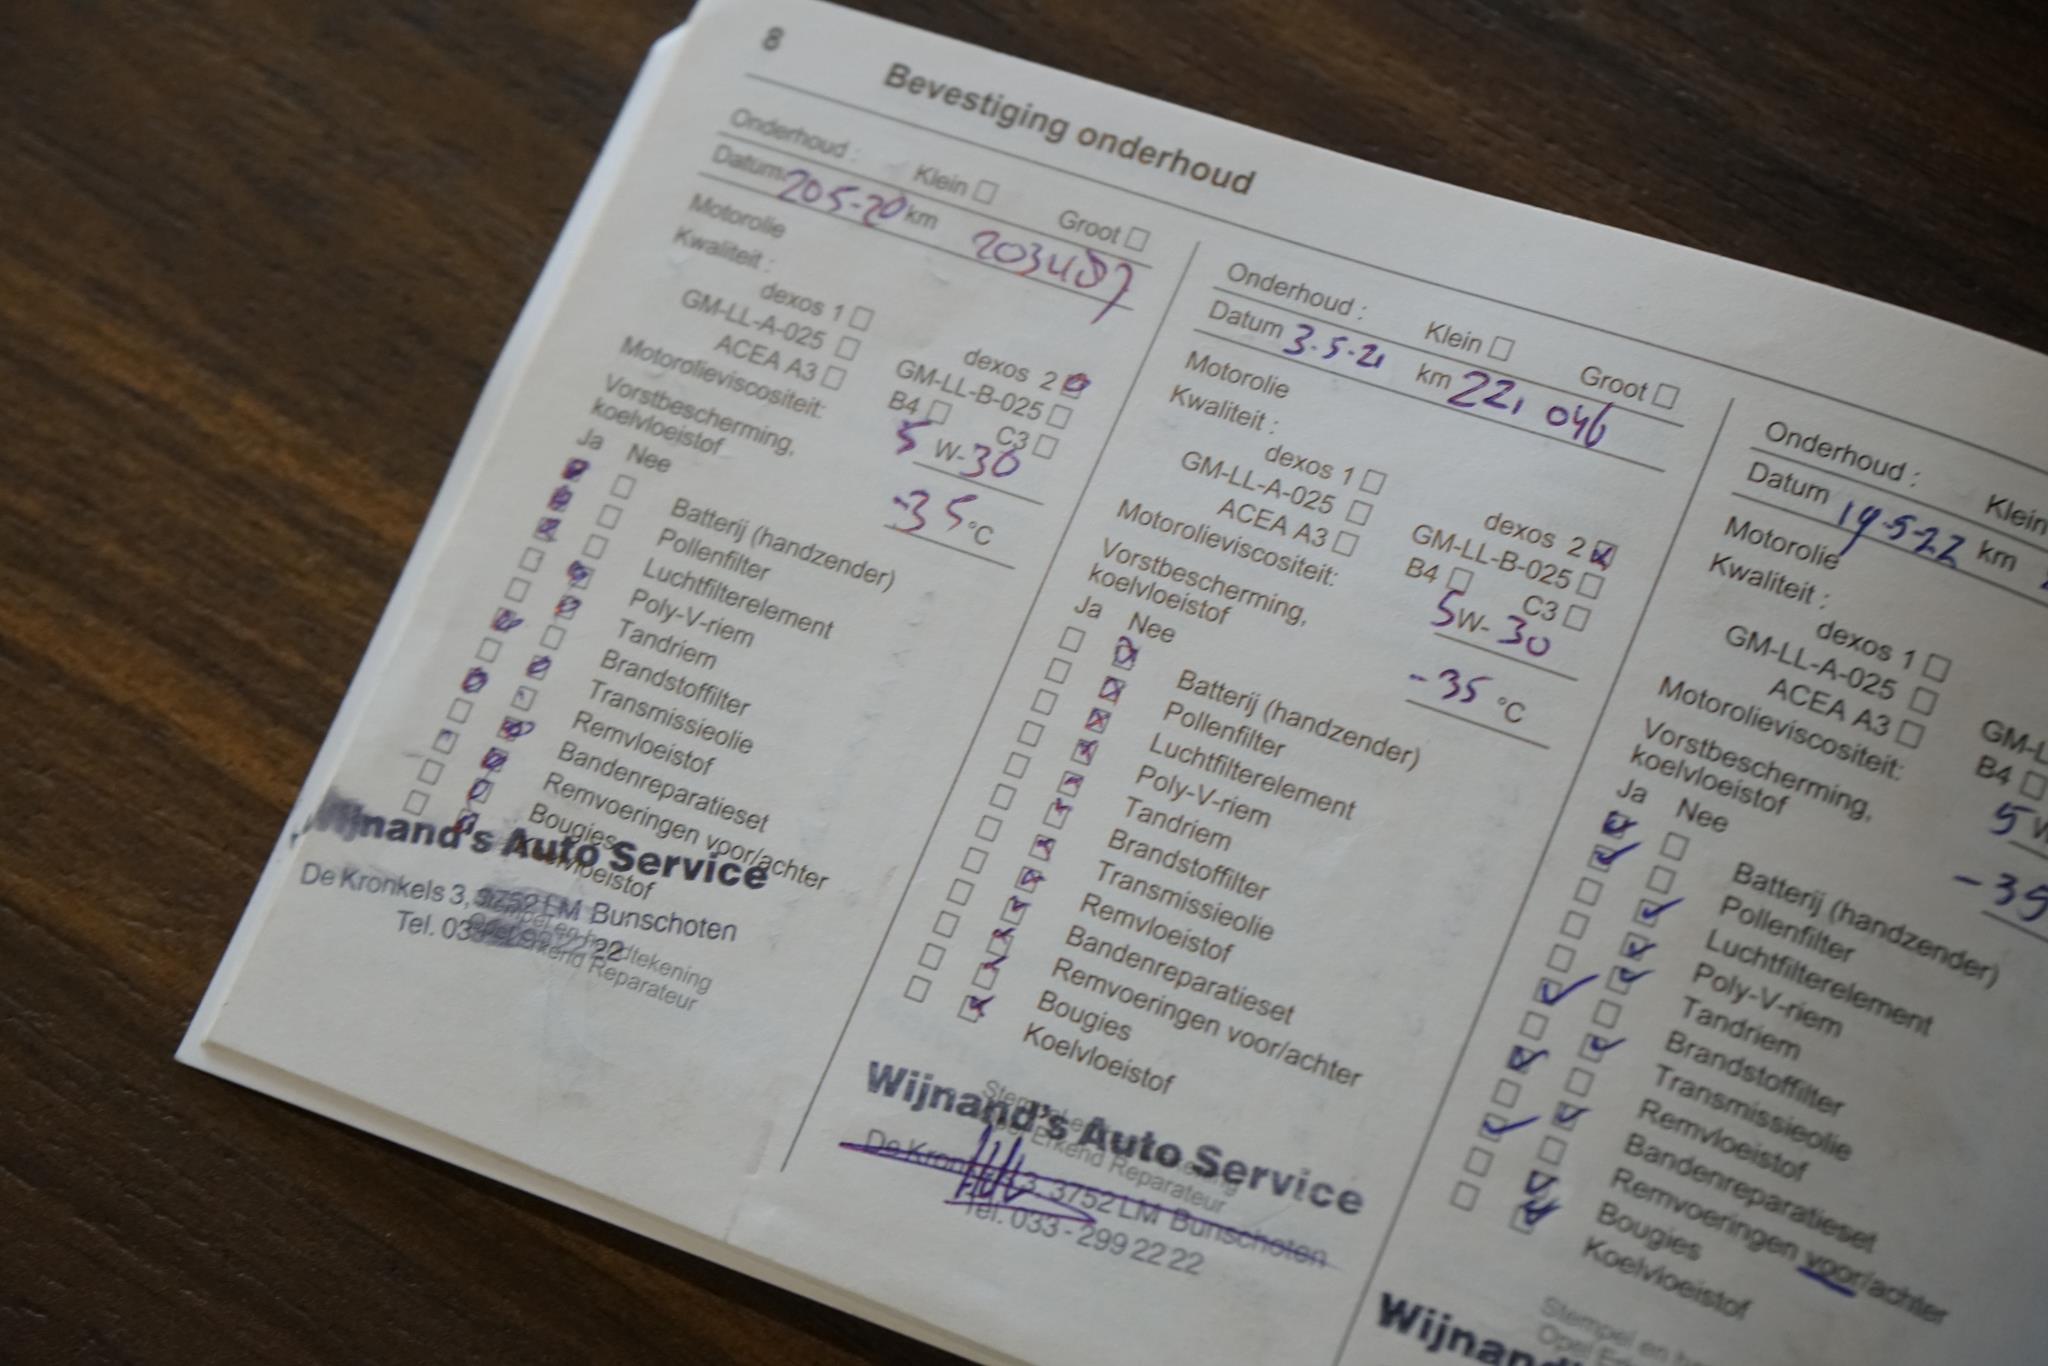 8
Bevestiging onderhoud
Onderhoud : Klein Groot
Datum 205-20 km 203487
Motorolie
Kwaliteit :
dexos 1 dexos 2
GM-LL-A-025 GM-LL-B-025
ACEA A3 B4 C3
Motorolieviscositeit: 5 W-30
Vorstbescherming,
koelvloeistof -35 °C
Ja Nee
Batterij (handzender)
Pollenfilter
Luchtfilterelement
Poly-V-riem
Tandriem
Brandstoffilter
Transmissieolie
Remvloeistof
Bandenreparatieset
Remvoeringen voor/achter
Bougies
Koelvloeistof
Wijnand's Auto Service
De Kronkels 3, 3752 LM Bunschoten
Stempel en handtekening
Opel Erkend Reparateur
Tel. 033-299 22 22
Onderhoud : Klein Groot
Datum 3-5-21 km 22, 046
Motorolie
Kwaliteit :
dexos 1 dexos 2
GM-LL-A-025 GM-LL-B-025
ACEA A3 B4 C3
Motorolieviscositeit: 5 W- 30
Vorstbescherming,
koelvloeistof -35 °C
Ja Nee
Batterij (handzender)
Pollenfilter
Luchtfilterelement
Poly-V-riem
Tandriem
Brandstoffilter
Transmissieolie
Remvloeistof
Bandenreparatieset
Remvoeringen voor/achter
Bougies
Koelvloeistof
Wijnand's Auto Service
Stempel en handtekening
Opel Erkend Reparateur
De Kronkels 3, 3752 LM Bunschoten
Tel. 033 - 299 22 22
Onderhoud : Klein
Datum 19-5-22 km
Motorolie
Kwaliteit :
dexos 1
GM-LL-A-025 GM-L
ACEA A3 B4
Motorolieviscositeit: 5 W
Vorstbescherming,
koelvloeistof -35
Ja Nee
Batterij (handzender)
Pollenfilter
Luchtfilterelement
Poly-V-riem
Tandriem
Brandstoffilter
Transmissieolie
Remvloeistof
Bandenreparatieset
Remvoeringen voor/achter
Bougies
Koelvloeistof
Stempel en
Opel
Wijnand's